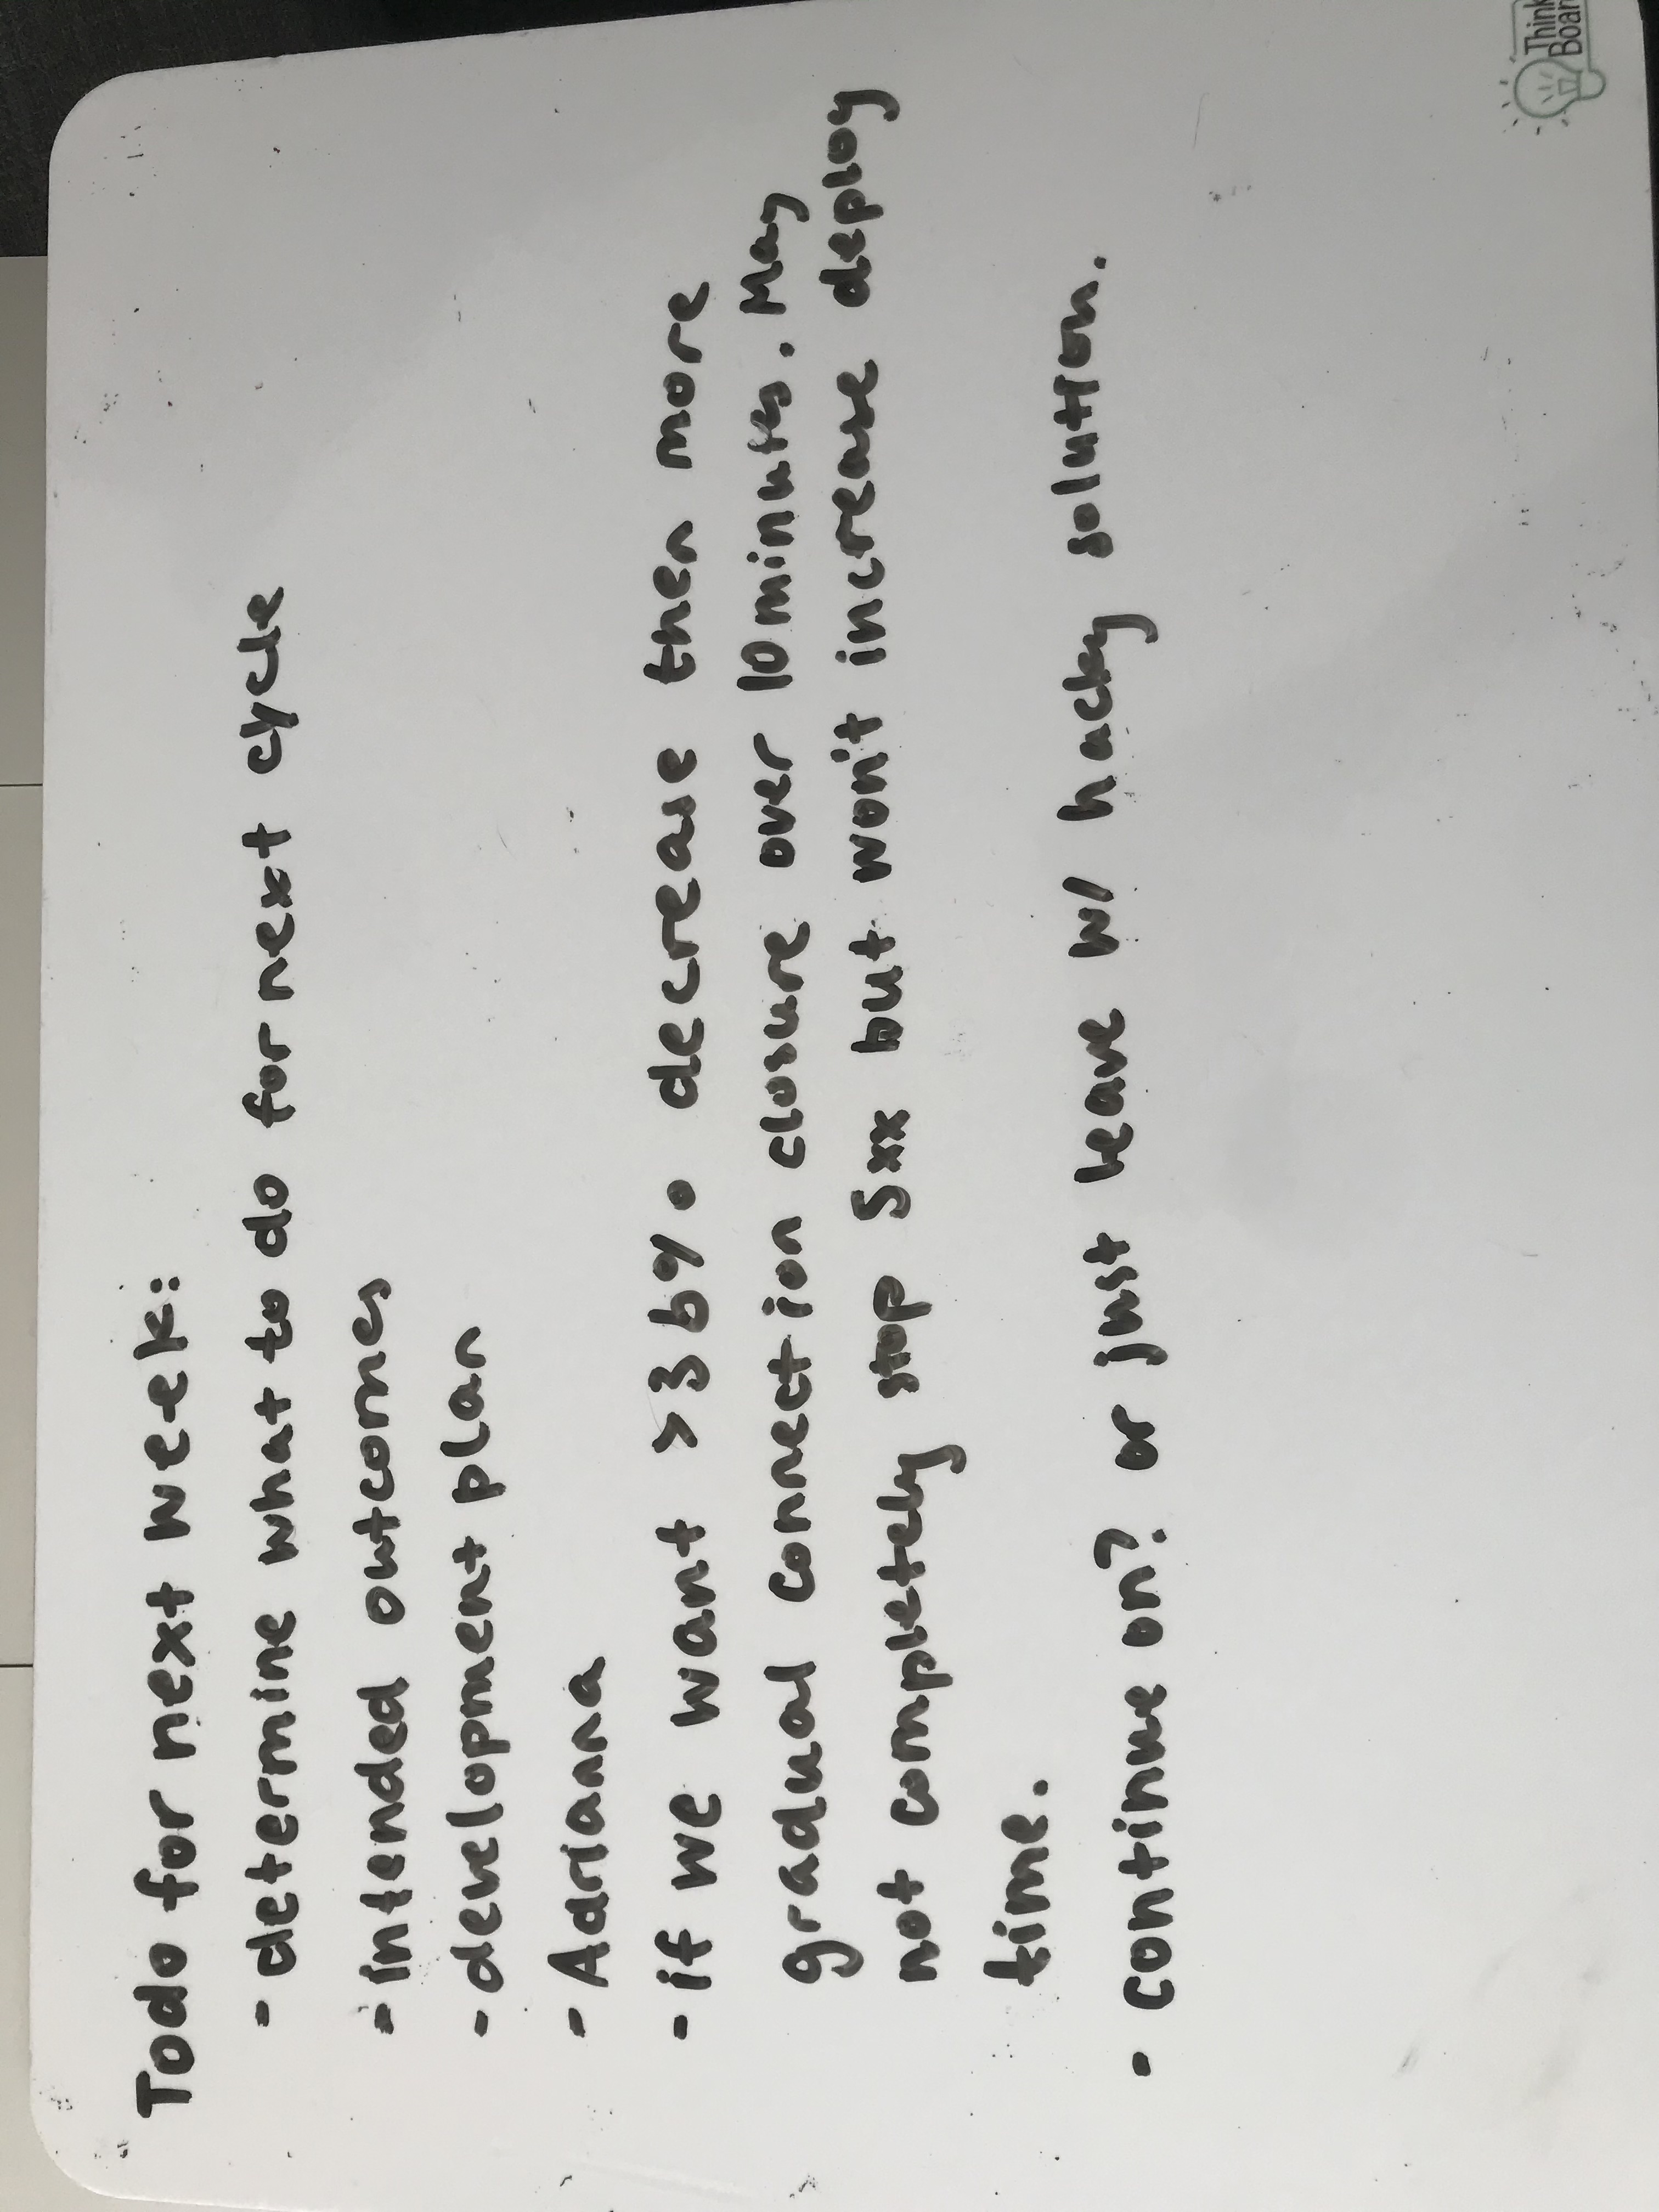 Todo for next week:
- determine what to do for next cycle
- intended outcomes
- development plan
- Adrianna
- if we want >36% decrease then more
gradual connection closure over 10 minutes. May
not completely stop 5xx but won't increase deploy
time.
- continue on? or just leave w/ hacky solution.
Think
Board